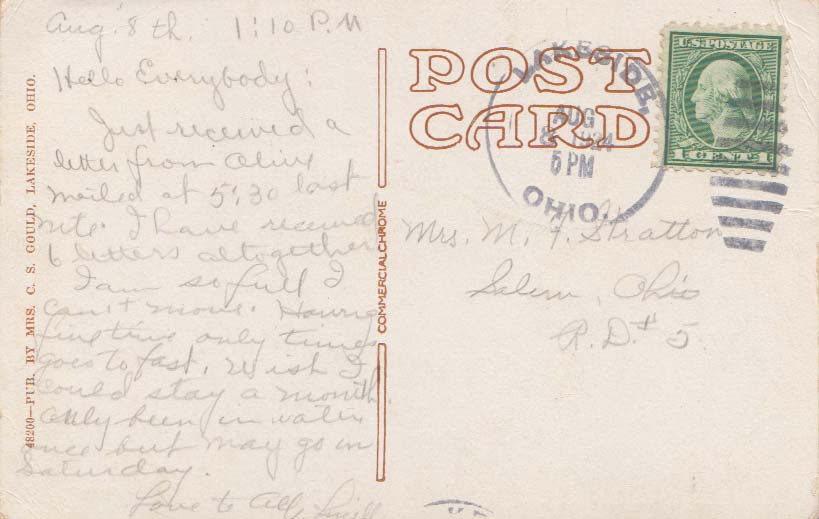 Aug. 8 th. 1:10 P.M
Hello Everybody:
Just received a
letter from Olive
mailed at 5:30 last
nite. I have received
6 letters altogether
I am so full I
can't move. Having
fine time only time
goes to fast. Wish I
could stay a month.
Only been in water
once but may go in
Saturday.
Love to All
POST
CARD
LAKESIDE,
AUG
8 1924
5 PM
OHIO.
U.S. POSTAGE
1 CENT 1
Mrs. M. F. Stratton
Salem, Ohio
R.D. # 5.
COMMERCIALCHROME
48200—PUB. BY MRS. C. S. GOULD, LAKESIDE, OHIO.